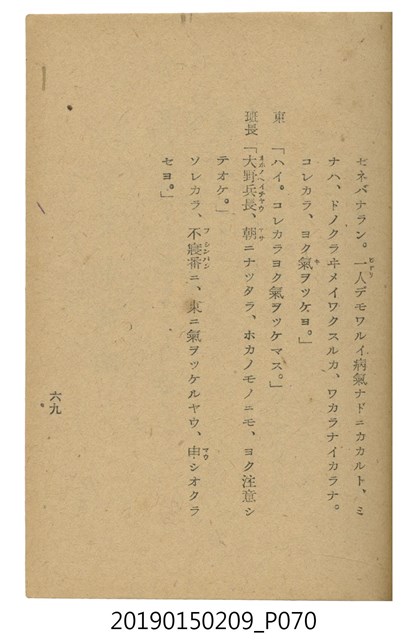 セネバナラン。一人デモワルイ病氣ナドニカカルト、ミ
ナハ、ドノクラヰメイワクスルカ、ワカラナイカラナ。
コレカラ、ヨク氣ヲツケヨ。」
東　「ハイ。コレカラヨク氣ヲツケマス。」
班長「大野兵長、朝ニナッタラ、ホカノモノニモ、ヨク注意シ
テオケ。」
ソレカラ、不寢番ニ、東ニ氣ヲツケルヤウ、申シオクラ
セヨ。」
六九
20190150209_P070